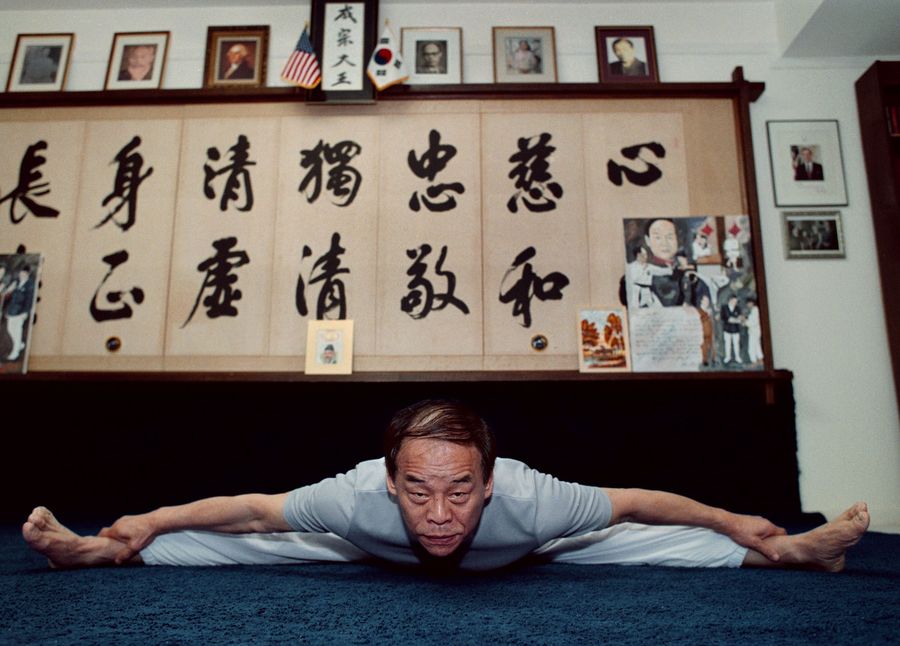 成宗大王
心
慈和
忠敬
獨清
清虛
身正
長